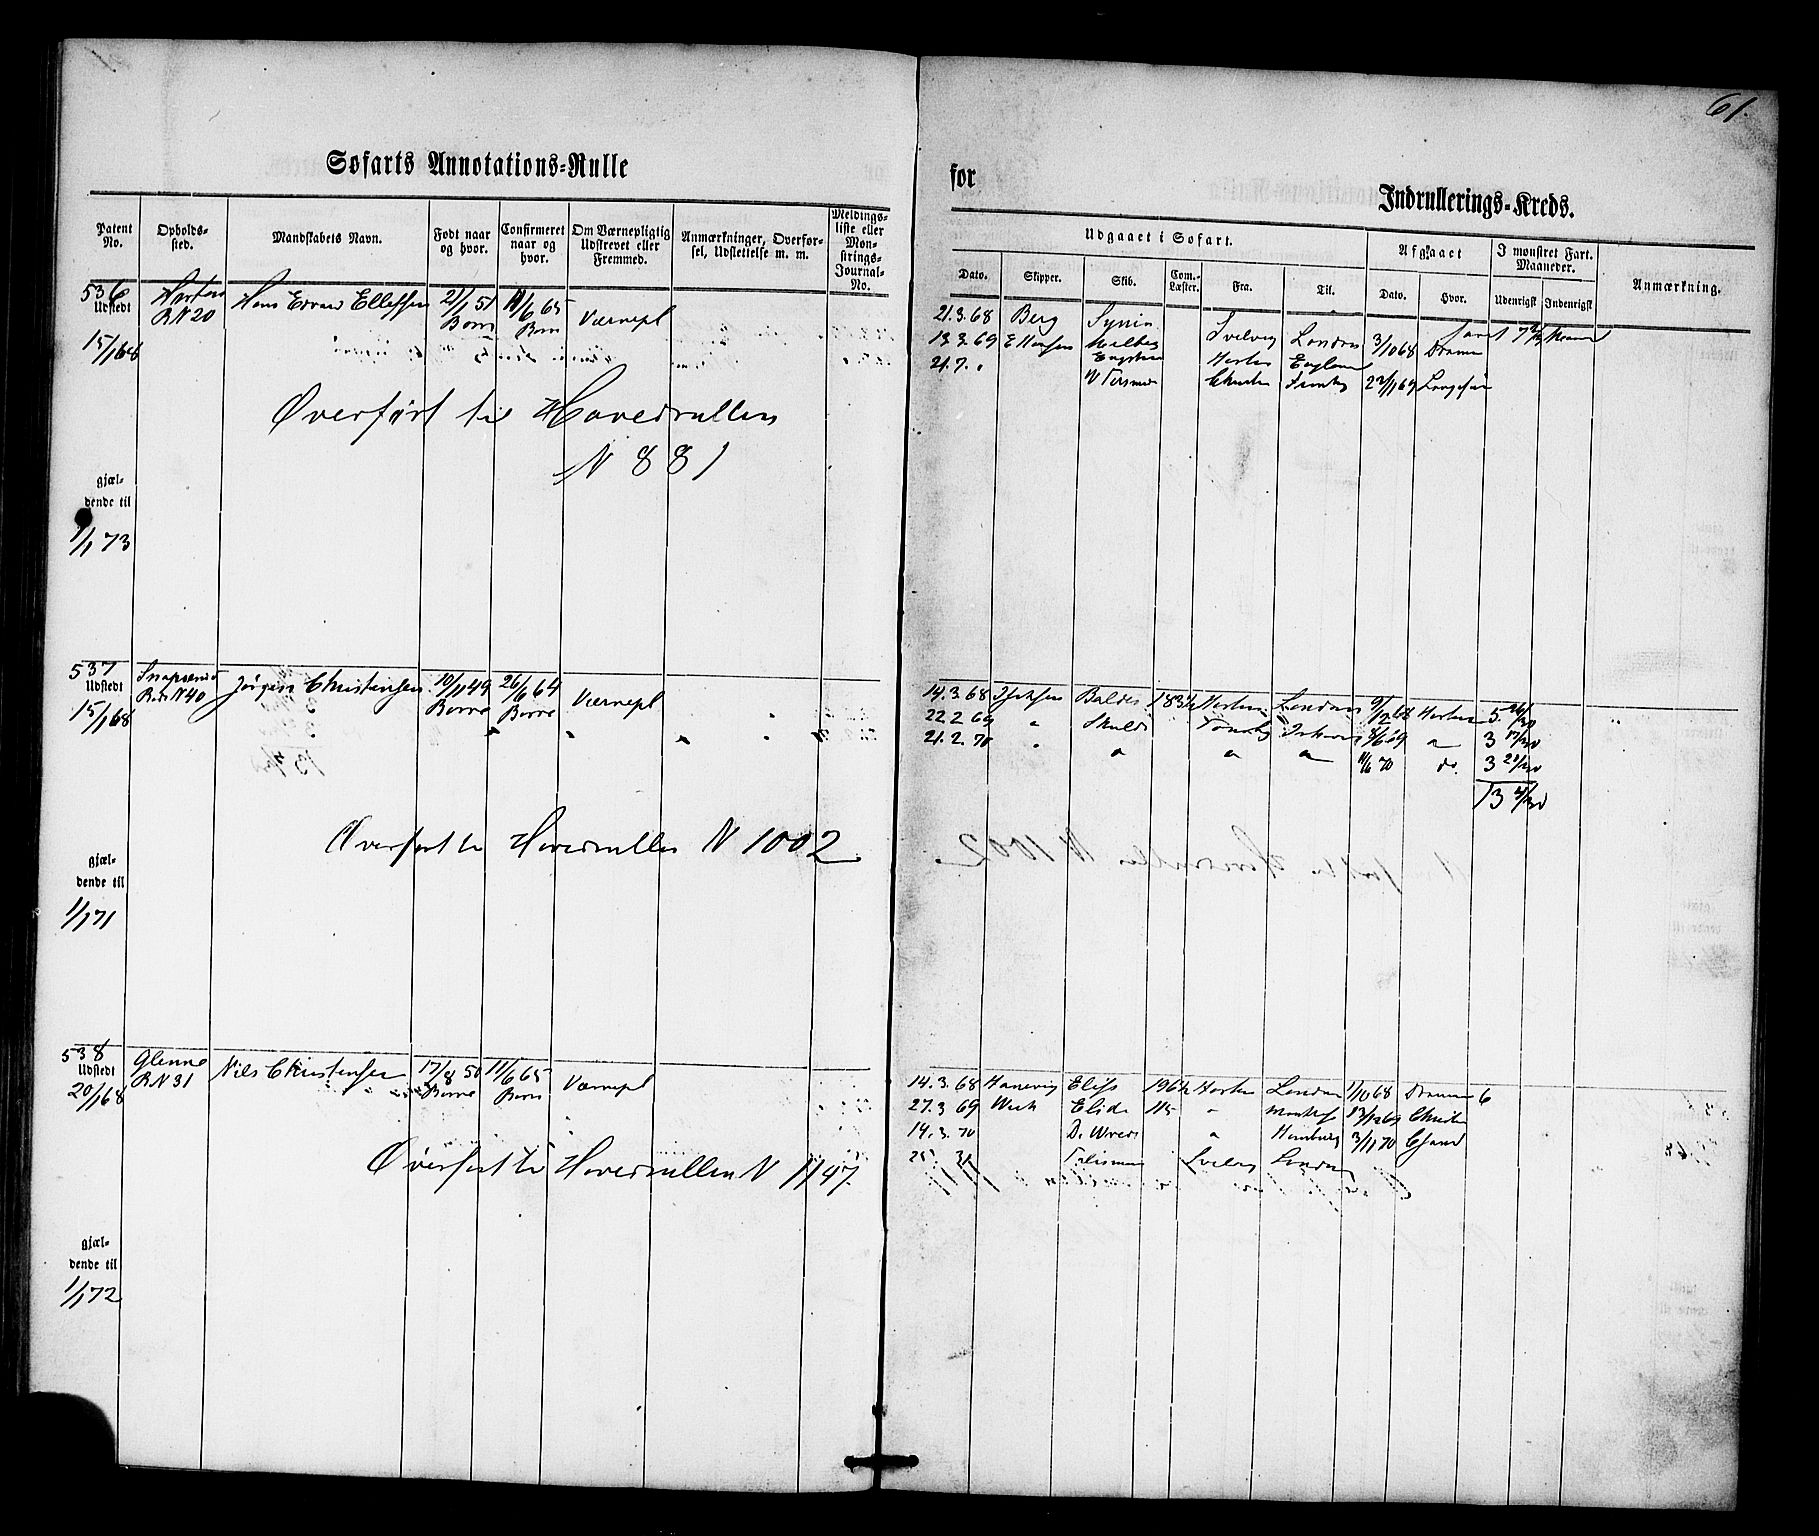 61.
Søfarts Annotations-Rulle
for
Indrullerings-Kreds.
Patent No.
Opholds-sted.
Mandskabets Navn.
Født naar og hvor.
Confirmeret naar og hvor.
Om Værnepligtig Udskrevet eller Fremmed.
Anmærkninger, Overfør-sel, Udslettelse m. m.
Meldings-liste eller Mønstrings-Journal-No.
Udgaaet i Søfart.
Afgaaet
I mønstret Fart. Maaneder.
Anmærkning.
Dato.
Skipper.
Skib.
Com.-Læster.
Fra.
Til.
Dato.
Hvor.
Udenrigst
Indenrigst
536 Horten Hans Edvard Ellefsen 21/1 51 11/6 65 Værnepl
Udstedt R N 20 Borre Borre
15/1 68
21.3.68 Berg Svelvig London 3/10 68 Dramm
13.3.69 Ellefsen Horten England
21.7. " Christ 22/1 69
Overført til Hovedrullen
N 881
gjæl-
dende til
1/1 73
537 Jørgen Christensen 10/11 49 26/6 64 Værnepl
Udstedt N 40 Borre Borre
15/1 68
14.3.68 Balder 183½ Horten London 9/12 68 Horten 5 26/30
22.2 69 " Skuld Tønsb 8/6 69 " 3 17/30
21.2.70 " " " " 11/6 70 do. 3 21/30
13 4/30
Overført til Hovedrullen N 1002
gjæl-
dende til
1/1 71
538 Glenne Nils Christensen 17/8 50 11/6 65 Værnepl
Udstedt R N 31 Borre Borre
20/1 68
14.3.68 Hanevig Eliss 196½ Horten London 1/10 68 Dramm 6
27.3 69 Elida 115 " 23/12 69 Christ
14.3.70 " Hamburg 3/11 70 Csand
Talisman Svelvig London
Overført til Hovedrullen N 1147
gjæl-
dende til
1/1 72